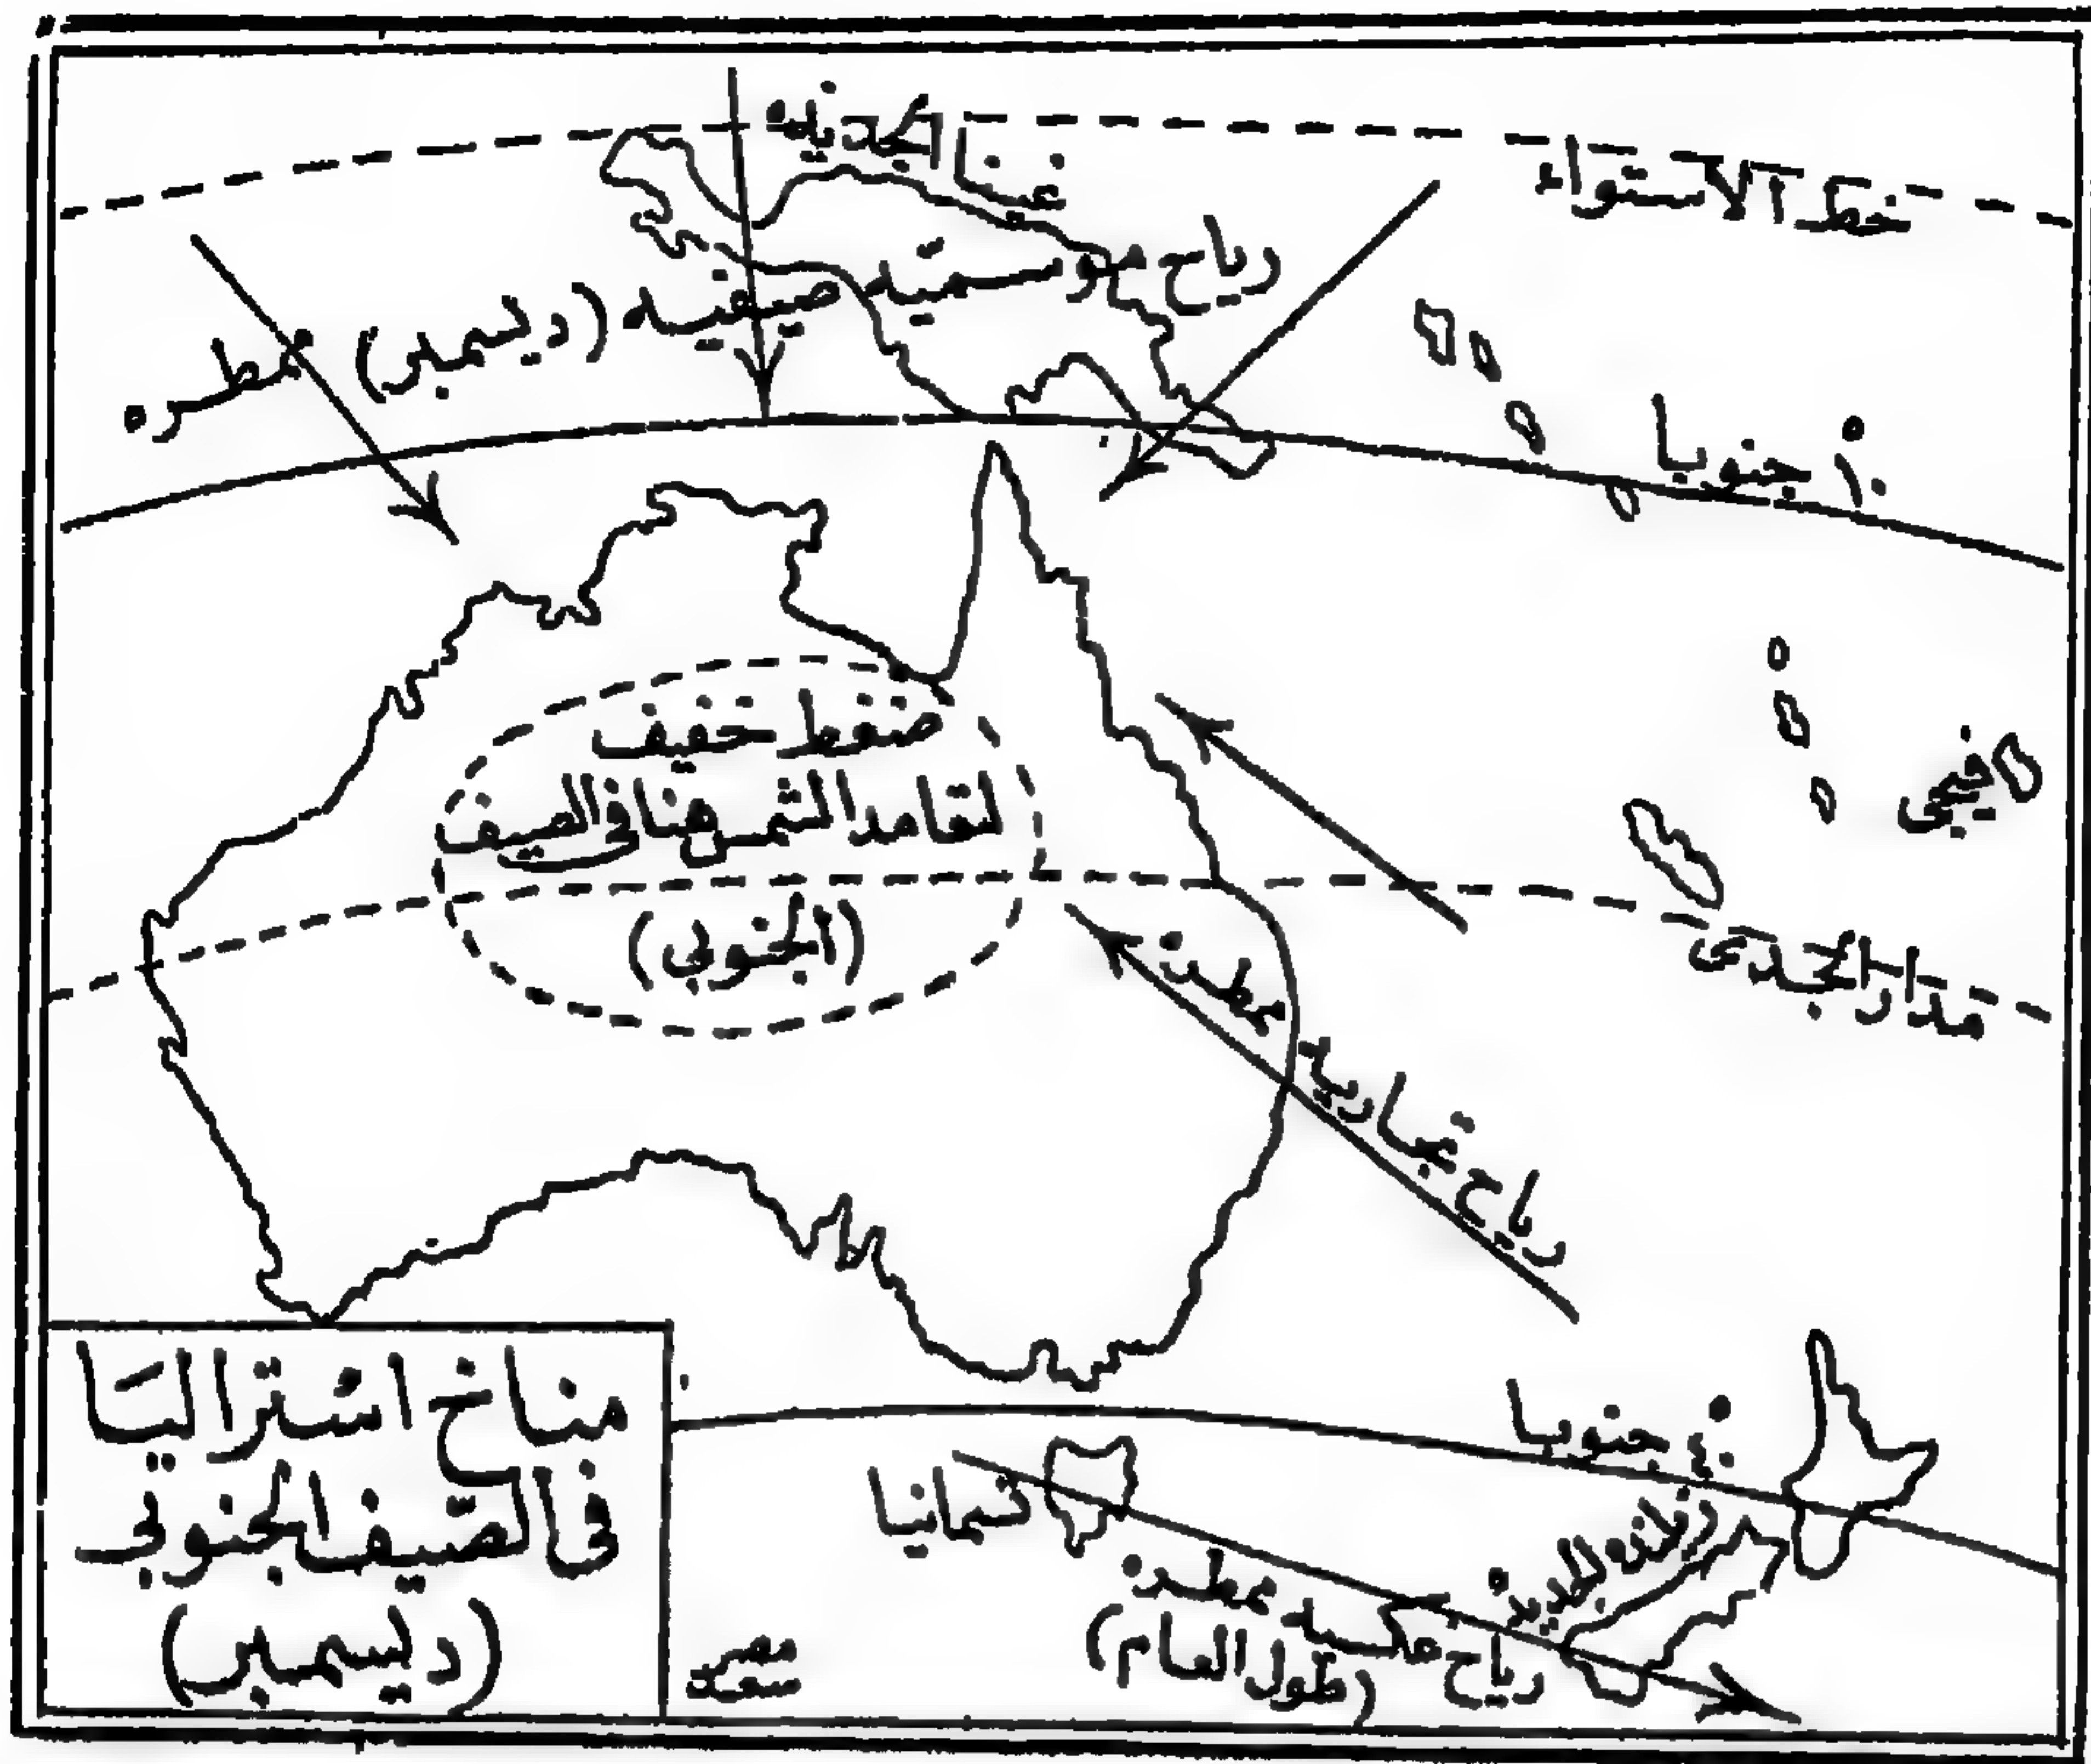 غينا الجديده
خط الاستواء
رياح موسميه صيفيه (ديسمبر) ممطره
١٠° جنوبا
ضغط خفيف
لتعامد الشمس هنا فى الصيف
(الجنوبي)
فيجى
مدار الجدى
رياح تجاريه ممطره
٤٠° جنوبا
تسمانيا
زيلنده الجديده
رياح عكسيه ممطره
(طول العام)
مناخ استراليا
فى الصيف الجنوبى
(ديسمبر)